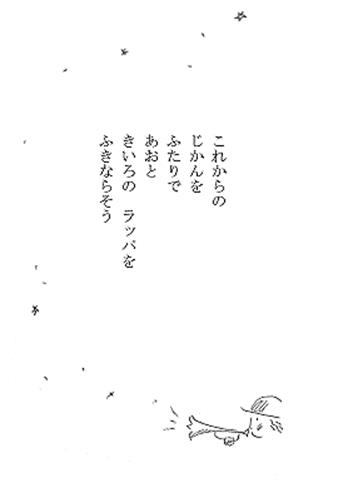 これからの
じかんを
ふたりで
あおと
きいろの　ラッパを
ふきならそう